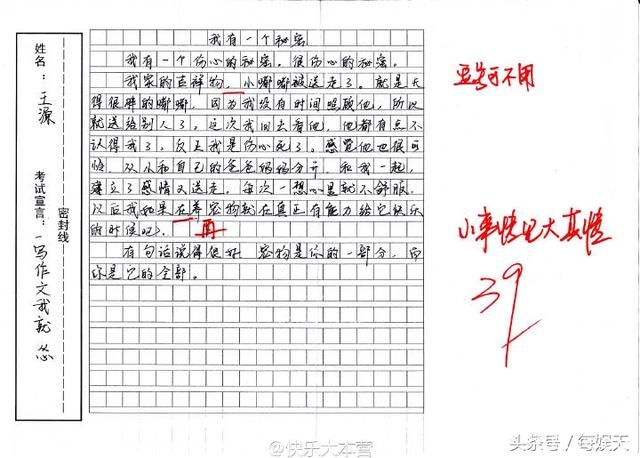 姓名：王源
考试宣言：一写作文我就怂
密封线
我有一个秘密
我有一个伤心的秘密。很伤心的秘密。
我家的吉祥物，小嘟嘟被送走了。就是长
得很胖的嘟嘟，因为我没有时间照顾他，所以
就送给别人了。这次我回去看他，他都有点不
认得我了，反正我是伤心死了。感觉他也很可
怜，从小和自己的爸爸妈妈分开，和我一起，
建立了感情又送走。每次一想心里就不舒服。
以后我如果在养宠物就在真正有能力给它快乐
的时候吧。
再
有句话说得很好 宠物是你的一部分，而
你是它的全部。
逗号可不用
小事情见大真情
39
@快乐大本营
头条号／每娱天